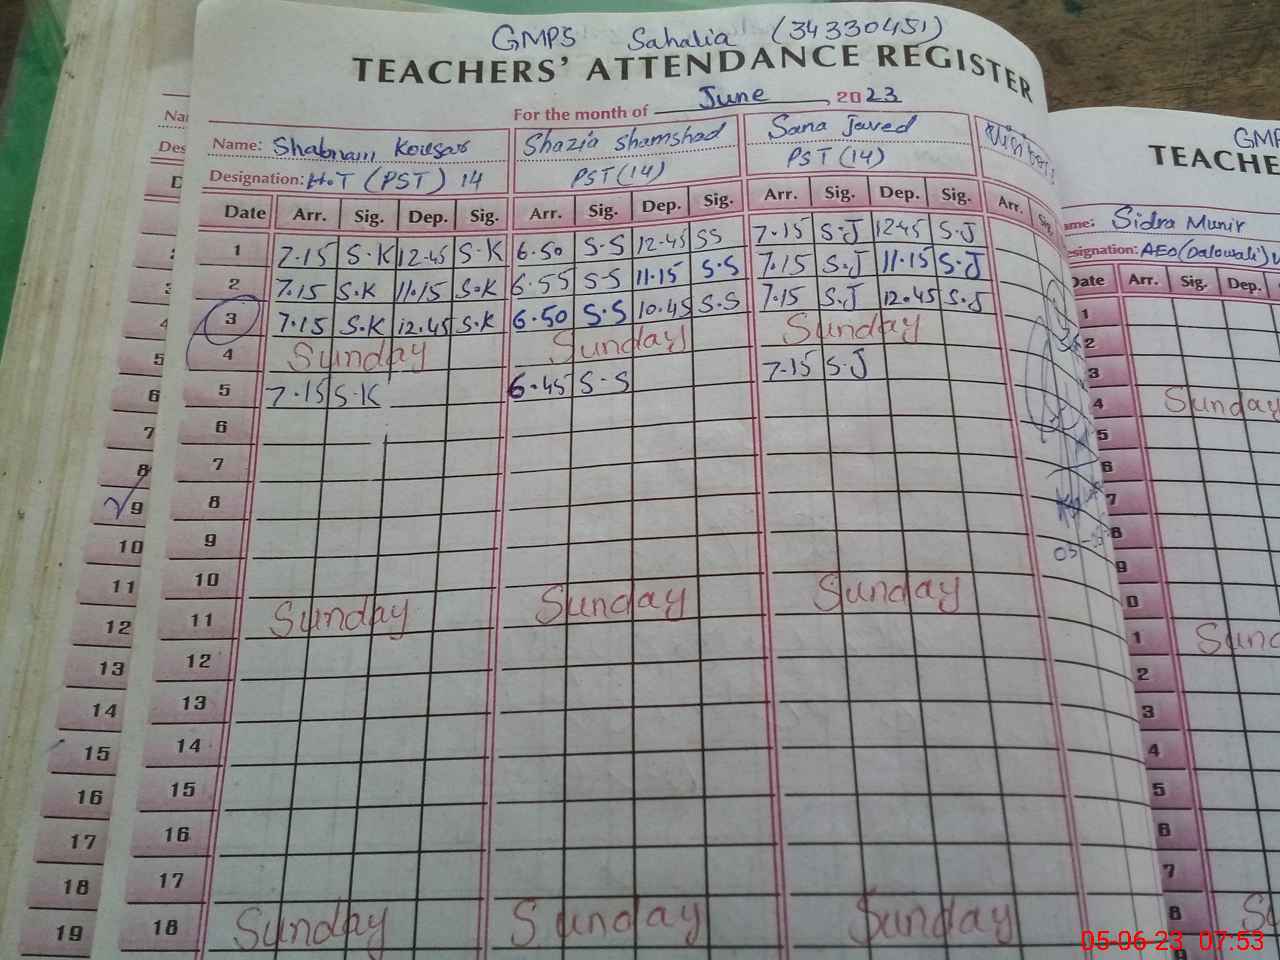 GMPS Sahalia (34330451)
TEACHERS' ATTENDANCE REGISTER
For the month of June, 2023
Name: Shabnam Kousar Shazia Shamshad Sana Javed
Designation: H.T (PST) 14 PST(14) PST(14)
Date Arr. Sig. Dep. Sig. Arr. Sig. Dep. Sig. Arr. Sig. Dep. Sig. Arr. Sig.
1 7.15 S.K 12.45 S.K 6.50 S.S 12.45 SS 7.15 S.J 1245 S.J
2 7.15 S.K 11.15 S.K 6.55 S.S 11.15 S.S 7.15 S.J 11.15 S.J
3 7.15 S.K 12.45 S.K 6.50 S.S 10.45 S.S 7.15 S.J 12.45 S.J
4 Sunday Sunday Sunday
5 7.15 S.K 6.45 S.S 7.15 S.J
6
7
8
9
10
11 Sunday Sunday Sunday
12
13
14
15
16
17
18 Sunday Sunday Sunday
Na
Des
D
4
5
6
7
8
9
10
11
12
13
14
15
16
17
18
19
GMP
TEACHE
ame: Sidra Munir
esignation: AEO(Dalowali)
Date Arr. Sig. Dep.
1
2
3
4 Sunday
5
6
7
8
9
0
1 Sund
2
3
4
5
6
7
8 Su
9
05-06-23 07:53